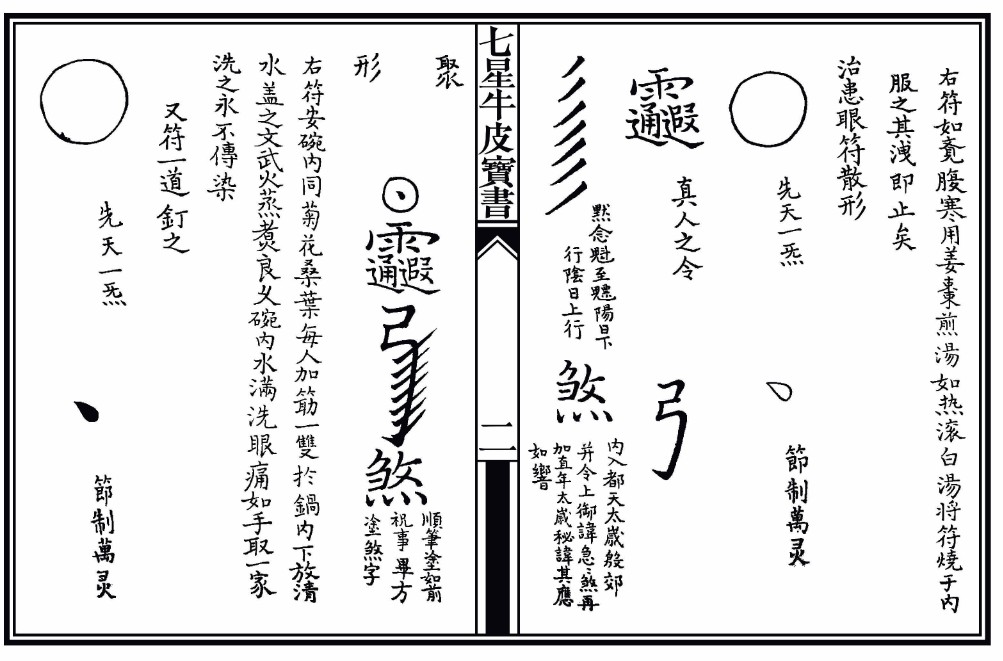 右符如竟腹寒用姜棗煎湯如热滚白湯将符燒于内
服之其洩即止矣
治患眼符散形
先天一炁
節制萬灵
真人之令
弓
默念魁至魓陽日下
行陰日上行
煞
内入都天太歲殷郊
并令上御諱急急煞再
加直年太歲秘諱其應
如響
七星牛皮寶書
二
聚
形
弓
煞
順筆塗如前
祝事畢方
塗煞字
右符安碗内同菊花桑葉每人加筯一雙於鍋内下放清
水盖之文武火蒸煑良久碗内水满洗眼痛如手取一家
洗之永不傳染
又符一道釘之
先天一炁
節制萬灵